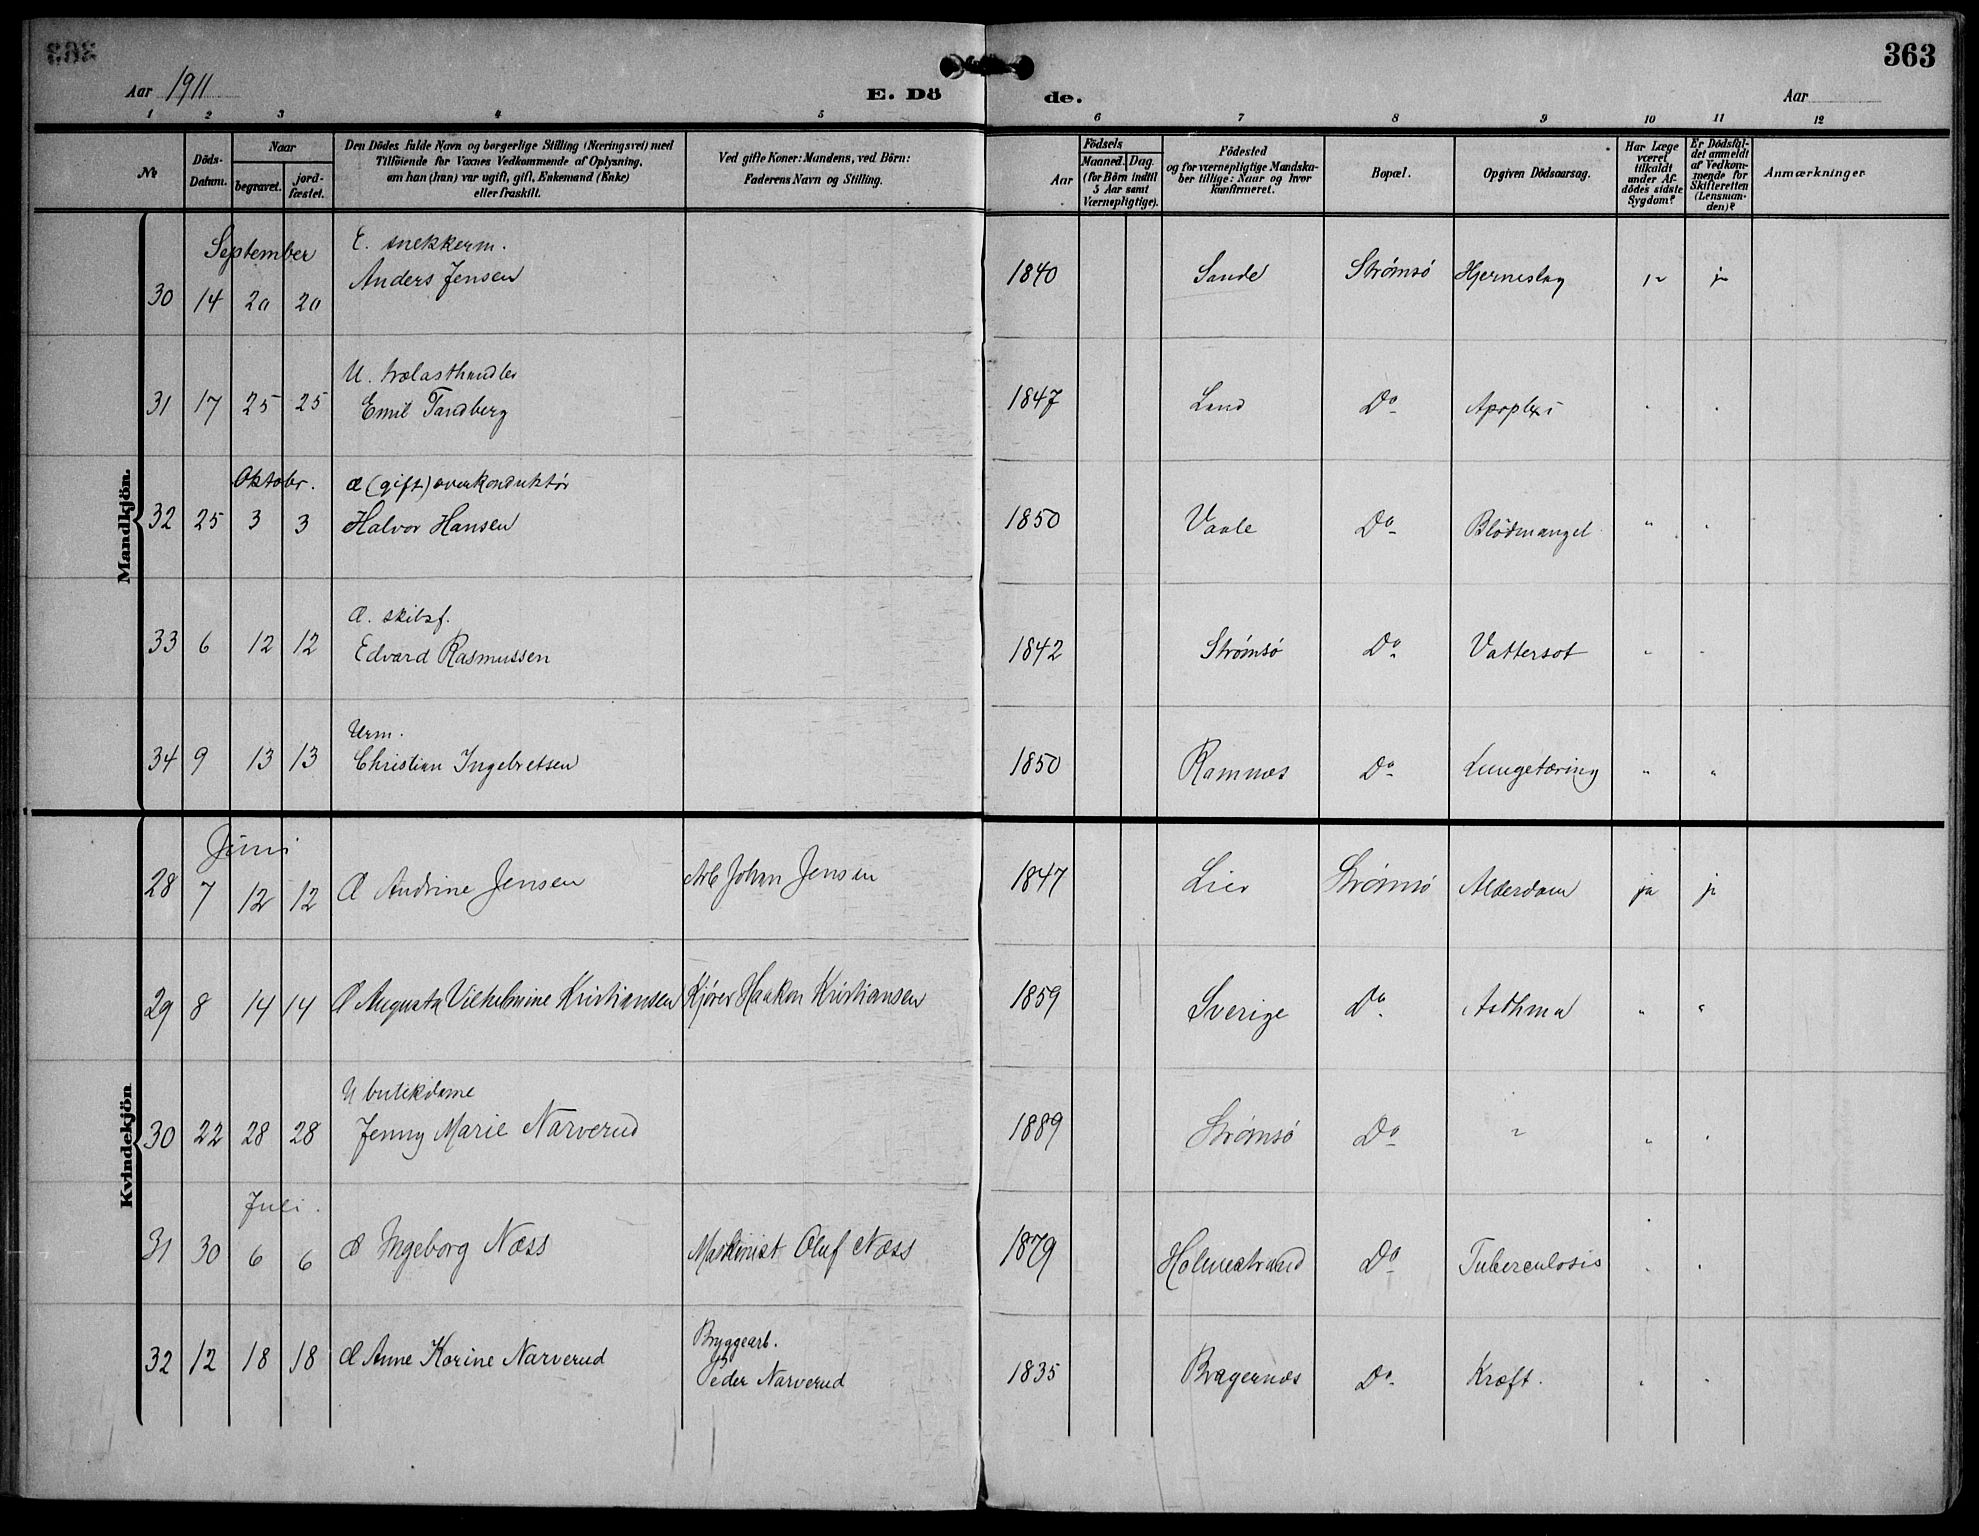 363
Aar 1911
E. Dö
de.
Aar
1 2 3 4 5 6 7 8 9 10 11 12
№
Döds-
Datum.
Naar
begravet.
jord-
fæstet.
Den Dödes fulde Navn og borgerlige Stilling (Næringsvei) med
Tilföiende for Voxnes Vedkommende af Oplysning,
om han (hun) var ugift, gift, Enkemand (Enke)
eller fraskilt.
Ved gifte Koner: Mandens, ved Börn:
Faderens Navn og Stilling.
Födsels
Aar
Maaned.
Dag.
(for Börn indtil
5 Aar samt
Værnepligtige).
Födested
og for værnepligtige Mandska-
ber tillige: Naar og hvor
konfirmeret.
Bopæl.
Opgiven Dödsaarsag.
Har Læge
været
tilkaldt
under Af-
dödes sidste
Sygdom?
Er Dödsfal-
det anmeldt
af Vedkom-
mende for
Skifteretten
(Lensman-
den)?
Anmærkninger
Mandkjön.
September
E. snekkerm.
30 14 20 20 Anders Jensen 1840 Sande Strømsö Hjerneslag ja ja
U. trælasthandler
31 17 25 25 Emil Tandberg 1847 Land Do Apoplexi " "
Oktobr.
Æ (gift) overkonduktør
32 25 3 3 Halvor Hansen 1850 Vaale Do Blödmangel " "
Æ. skibsf.
33 6 12 12 Edvard Rasmussen 1842 Strømsö Do Vattersot " "
Urm.
34 9 13 13 Christian Ingebretsen 1850 Ramnæs Do Lungetæring " "
Kvindekjön
Juni
28 7 12 12 Æ Andrine Jensen Arb Johan Jensen 1847 Lier Strømsö Alderdom ja ja
29 8 14 14 Æ Augusta Vilhelmine Kristiansen Kjører Haakon Kristiansen 1859 Sverige Do Asthma " "
U butikdame
30 22 28 28 Jenny Marie Narverud 1889 Strømsö Do " " "
Juli.
31 30 6 6 Æ Ingeborg Næss Maskinist Oluf Næss 1879 Holmestrand Do Tuberculosis " "
Bryggearb.
32 12 18 18 Æ Anne Karine Narverud Peder Narverud 1835 Bragernæs Do Kræft. " "